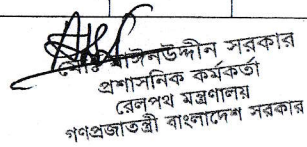 মোঃ মাঈনউদ্দীন সরকার
প্রশাসনিক কর্মকর্তা
রেলপথ মন্ত্রণালয়
গণপ্রজাতন্ত্রী বাংলাদেশ সরকার